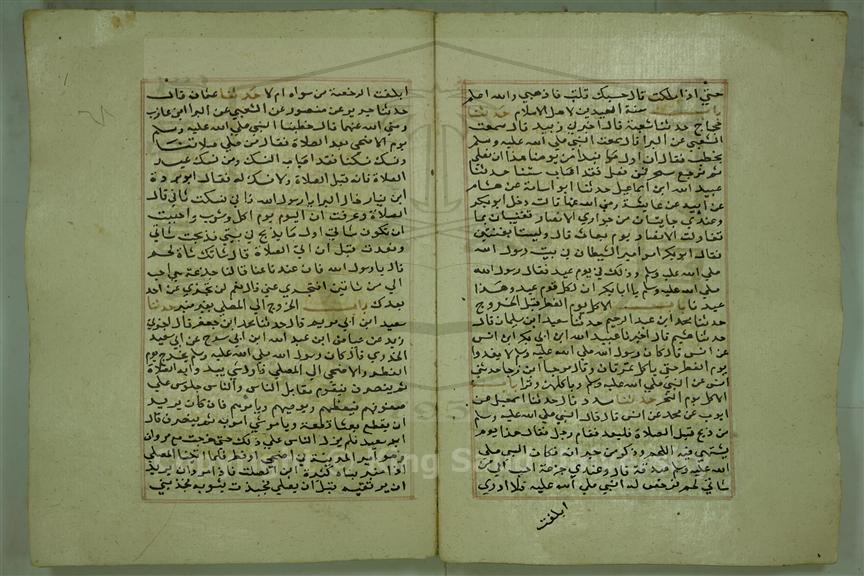 حتى اذا مللت قال حسبك قلت نعم قال فاذهبي والله اعلم
باب سنة العيدين لاهل الاسلام حدثنا
حجاج حدثنا شعبة قال اخبرني زبيد قال سمعت
الشعبي عن البرا قال سمعت النبي صلى الله عليه وسلم
يخطب فقال ان اول ما نبدا من يومنا هذا ان نصلي
ثم نرجع فننحر فمن فعل فقد اصاب سنتنا حدثنا
عبيد الله ابن اسماعيل حدثنا ابو اسامة عن هشام
عن ابيه عن عايشة رضي الله عنها قالت دخل ابو بكر
وعندي جاريتان من جواري الانصار تغنيان بما
تقاولت الانصار يوم بعاث قالت وليستا بمغنيتين
فقال ابو بكر امزامير الشيطان في بيت رسول الله
صلى الله عليه وسلم وذلك في يوم عيد فقال رسول الله
صلى الله عليه وسلم يا ابا بكر ان لكل قوم عيد وهذا
عيدنا باب الاكل يوم الفطر قبل الخروج
حدثنا محمد ابن عبد الرحيم حدثنا سعيد ابن سلمان قال
حدثنا هشيم قال اخبرنا عبيد الله ابن ابي بكر ابن انس
عن انس قال كان رسول الله صلى الله عليه وسلم لا يغدوا
يوم الفطر حتى ياكل تمرات وقال مرجا ابن رجا حدثني
انس عن النبي صلى الله عليه وسلم وياكلهن وترا باب
الاكل يوم النحر حدثنا مسدد قال حدثنا اسمعيل عن
ايوب عن محمد عن انس قال قال النبي صلى الله عليه وسلم
من ذبح قبل الصلاة فليعد فقام رجل فقال هذا يوم
يشتهى فيه اللحم وذكر من جيرانه فكان النبي صلى
الله عليه وسلم صدقه قال وعندي جذعة احب الي من
شاتي لحم فرخص له النبي صلى الله عليه فلا ادري
ابلغت
ابلغت الرخصة من سواه ام لا حدثنا عثمان قال
حدثنا جرير عن منصور عن الشعبي عن البرا ابن عازب
رضي الله عنهما قال خطبنا النبي صلى الله عليه وسلم
يوم الاضحى بعد الصلاة فقال من صلى صلاتنا
ونسك نسكنا فقد اصاب النسك ومن نسك قبل
الصلاة فانه قبل الصلاة ولا نسك له فقال ابو بردة
ابن نيار خال البرا يا رسول الله فاني نسكت شاتي قبل
الصلاة وعرفت ان اليوم يوم اكل وشرب واحببت
ان تكون شاتي اول ما يذبح في بيتي فذبحت شاتي
وتغديت قبل ان اتي الصلاة قال شاتك شاة لحم
قال يا رسول الله فان عندنا عناقا لنا جذعة هي احب
الي من شاتين افتجزي عني قال نعم لن تجزي عن احد
بعدك باب الخروج الى المصلى بغير منبر حدثنا
سعيد ابن ابي مريم قال حدثنا محمد ابن جعفر قال اخبرني
زيد عن عياض ابن عبد الله ابن ابي سرح عن ابي سعيد
الخدري قال كان رسول الله صلى الله عليه وسلم يخرج يوم
الفطر والاضحى الى المصلى فاول شي يبدا به الصلاة
ثم ينصرف فيقوم مقابل الناس والناس جلوس على
صفوفهم فيعظهم ويوصيهم ويامرهم فان كان يريد
ان يقطع بعثا قطعه او يامر بشي امر به ثم ينصرف قال
ابو سعيد فلم يزل الناس على ذلك حتى خرجت مع مروان
وهو امير المدينة في اضحى او فطر فلما اتينا المصلى
اذا منبر بناه كثير ابن الصلت فاذا مروان يريد
ان يرتقيه قبل ان يصلي فجبذت بثوبه فجبذني